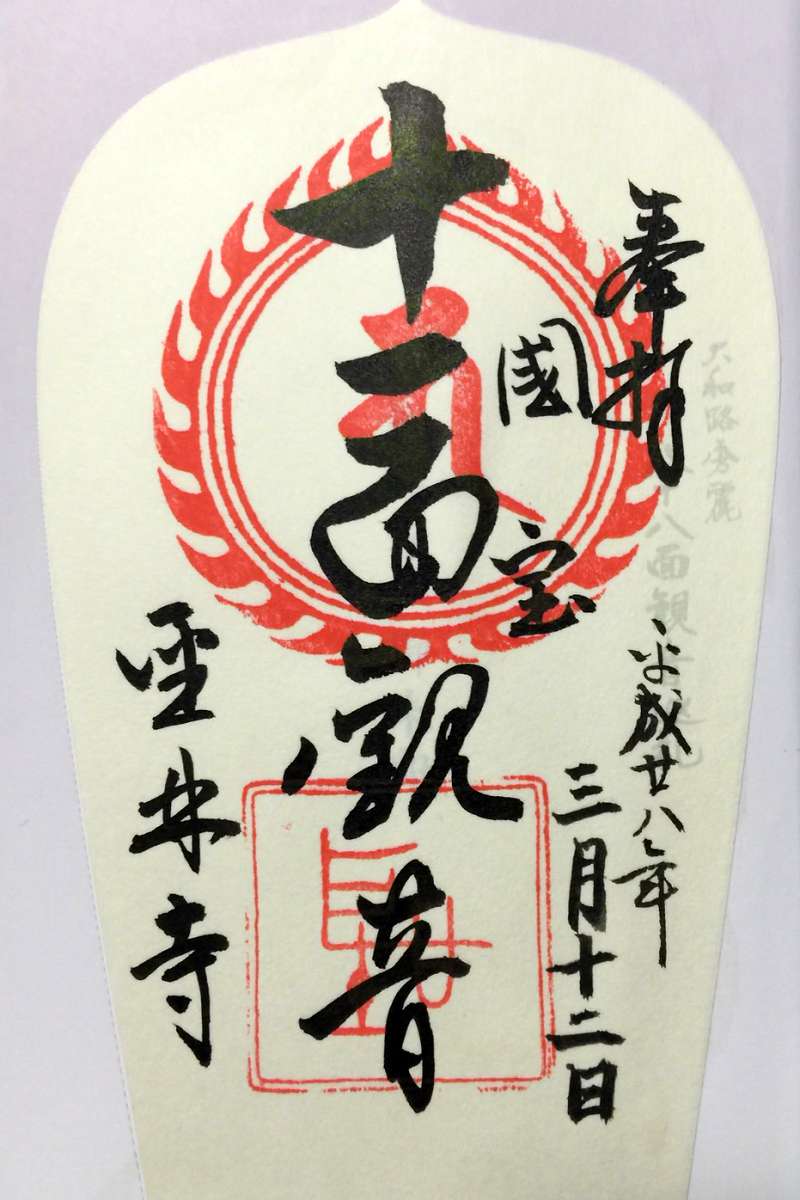 大和路秀麗
八十八面観音巡礼
奉拝
平成廿八年
三月十二日
國宝
十一面観音
聖林寺